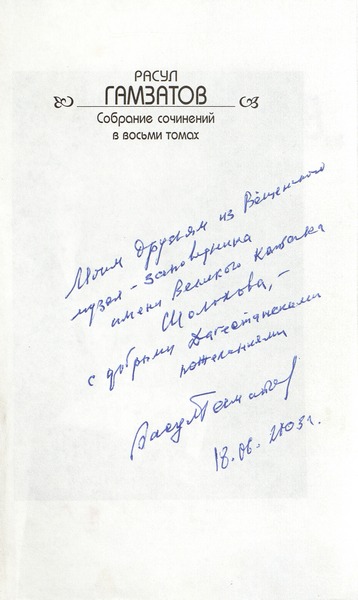 РАСУЛ
ГАМЗАТОВ
Собрание сочинений
в восьми томах
Моим друзьям из Вёшенского
музея-заповедника
имени Великого
Шолохова, –
с добрыми Дагестанскими
пожеланиями
Расул Гамзатов
18.06.2003г.